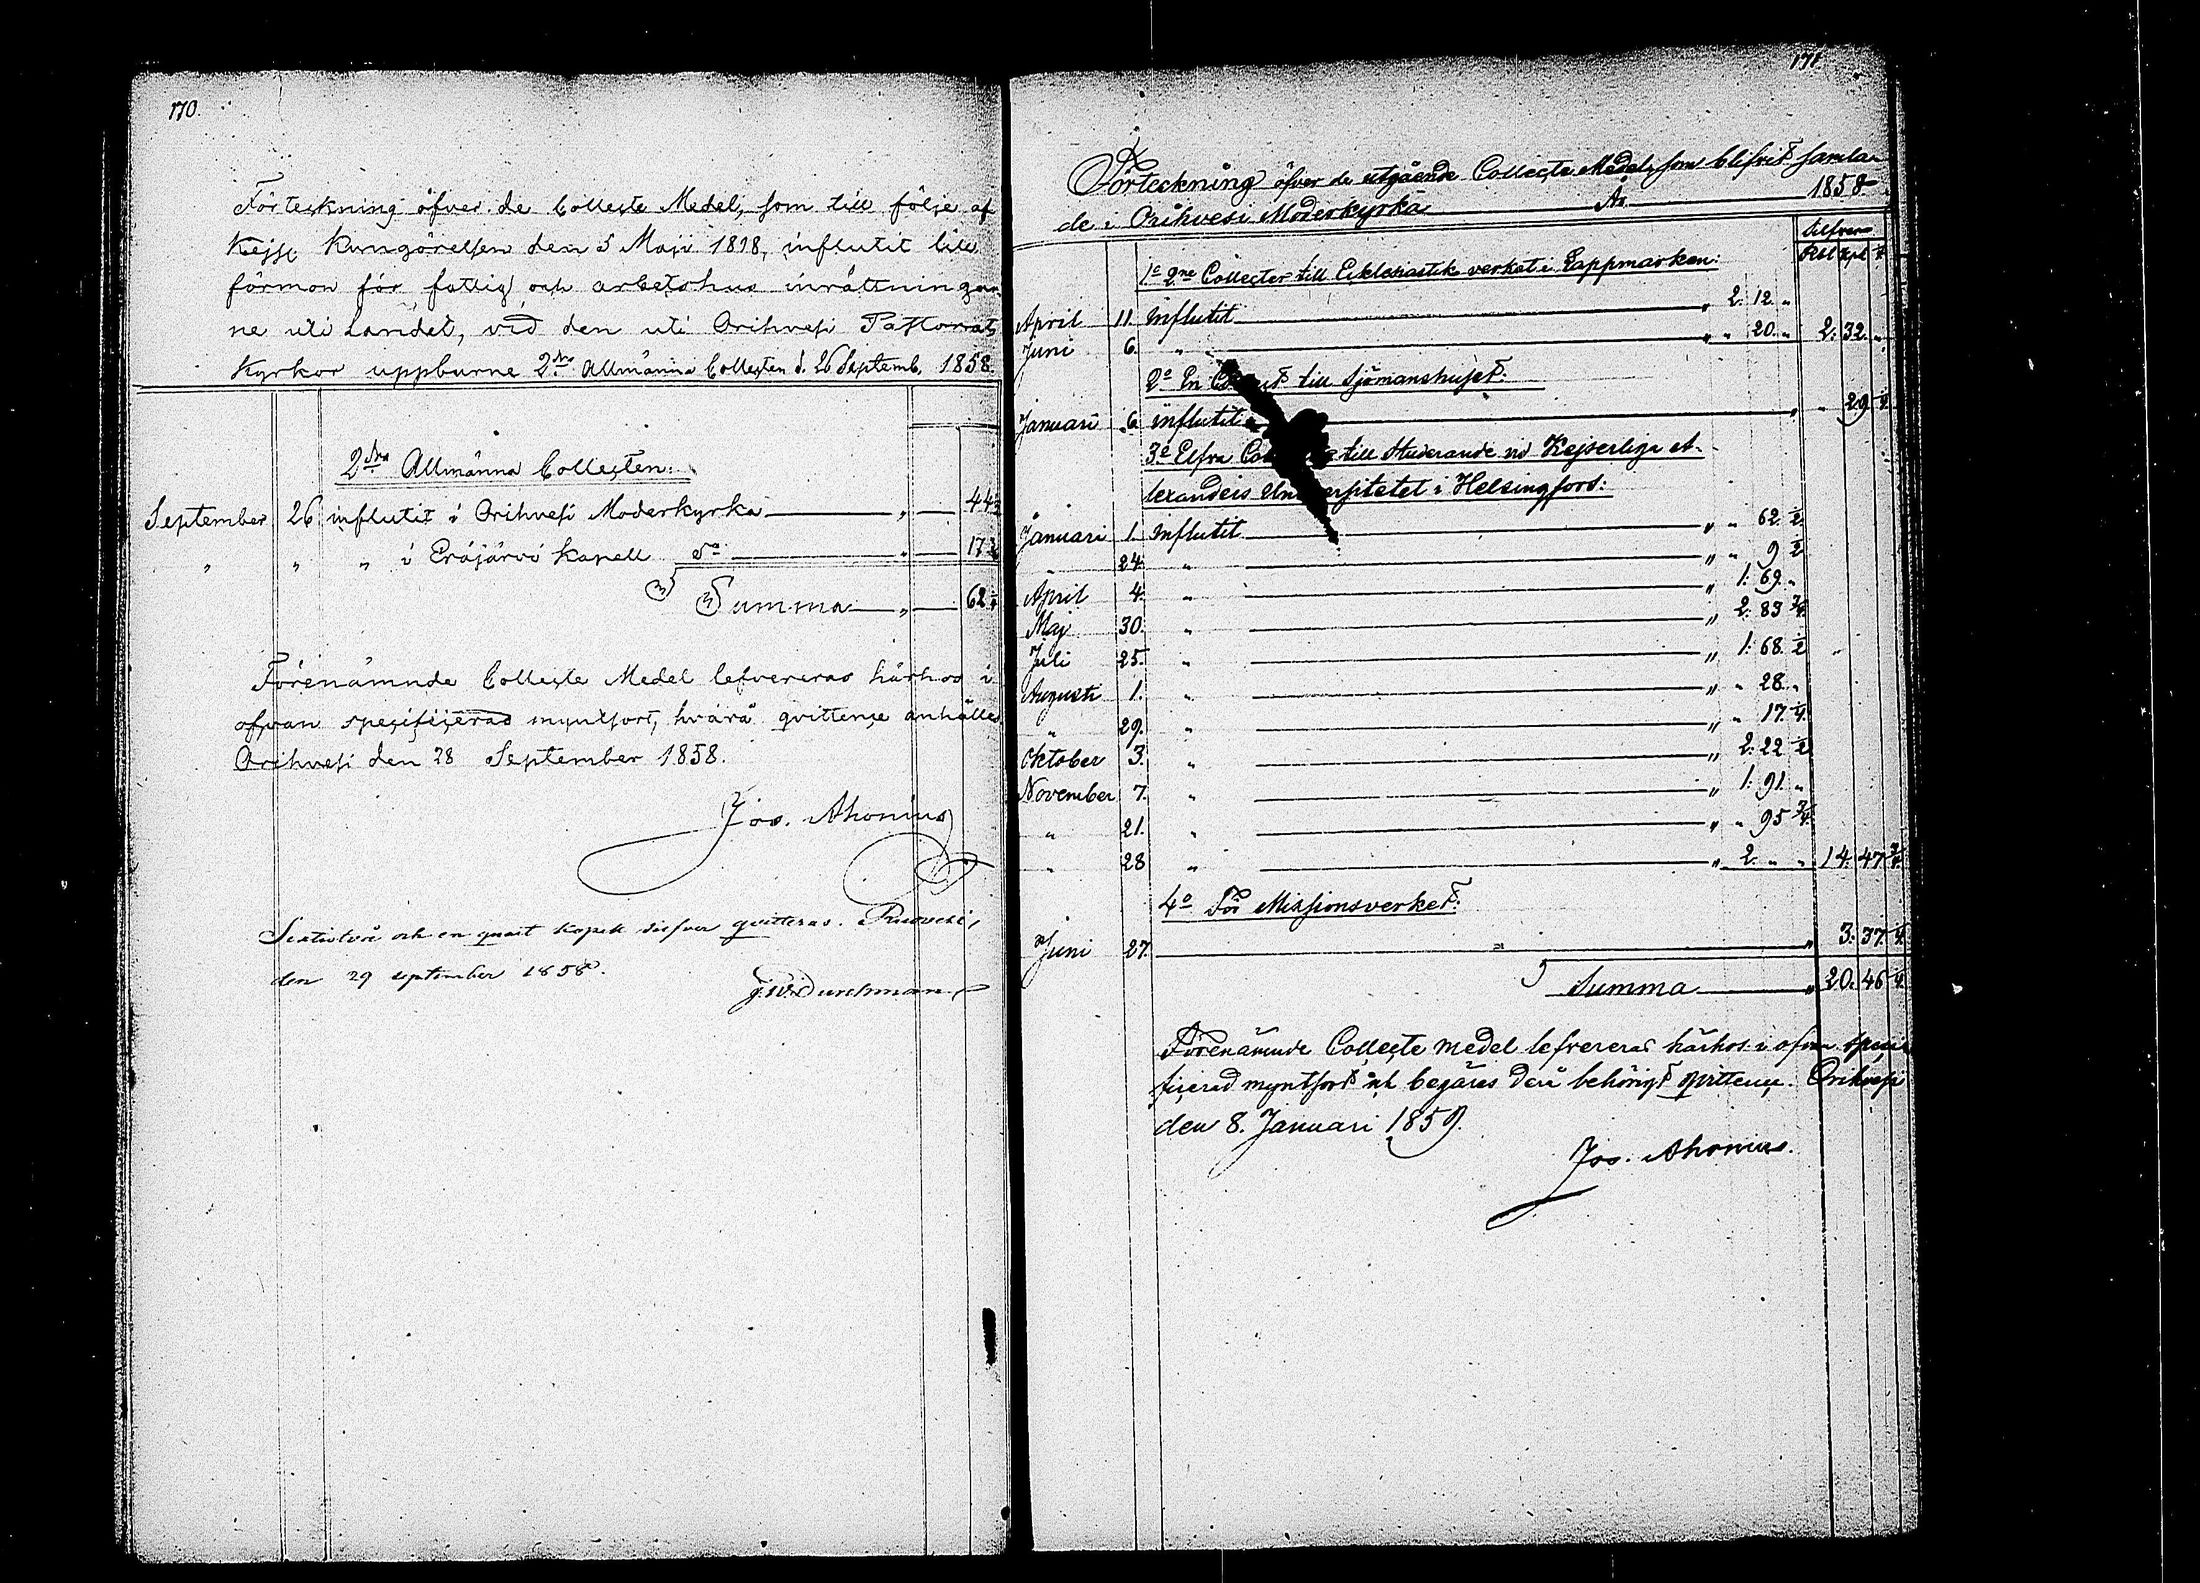 170.
Förteckning öfver de Collecte Medel, som till följe af
Kejsl. Kungörelsen den 5 Maji 1818, influtit till
förmon för fattig och arbetshus inrättningar-
ne uti Landet, vid den uti Orihvesi Pastorats
Kyrkor uppburne 2dra Allmänna Collecten d. 26 Septemb. 1858.
2dra Allmänna Collecten.
September 26 influtit i Orihvesi Moderkyrka " 44 1/2
" " " i Eräjärvi Kapell do " 17 3/4
Summa " 62 1/4
Förenämnde Collecte Medel lefvereras härhos i
ofvan specificerad myntsort, hvarå qvittence anhålles
Orihvesi den 28 September 1858.
Jos. Ahonius
Sextiotvå och en quart kopek silfver qvitteras. Ruovesi,
den 29 september 1858.
J.W. Durchman
171
Förteckning öfver de utgående Collecte Medel, som blifvit samla-
de i Orihvesi Moderkyrka År 1858
Silfver
Rbl Kpk
1o 2ne Collecter till Ecklesiastik verket i Lappmarken:
April 11 influtit " 2. 12. "
Juni 6. " " " 20. " 2. 32. "
2o En till Sjömanshuset.
Januari 6 influtit " " 29 1/4
3o Elfva till Studerande vid Kejserliga A-
lexanders Universitetet i Helsingfors:
Januari 1. influtit " " 62. 1/2
" 24. " " " 9 1/2
April 4. " " 1. 69. "
Maj 30. " " 2. 83 3/4
Juli 25. " " 1. 68. 1/2
Augusti 1. " " " 28. "
" 29. " " " 17. 1/4
Oktober 3. " " 2. 22 1/2
November 7. " " 1. 91. "
" 21. " " " 95 3/4
" 28 " " 2. " " 14. 47 3/4
4o För Missionsverket.
Juni 27. " " 3. 37. 1/4
Summa " 20. 46 1/4
Förenämnde Collecte medel lefvereras härhos i ofvan speci-
ficerad myntsort och begäres derå behörigt qvittence. Orihvesi
den 8. Januari 1859.
Jos. Ahonius.